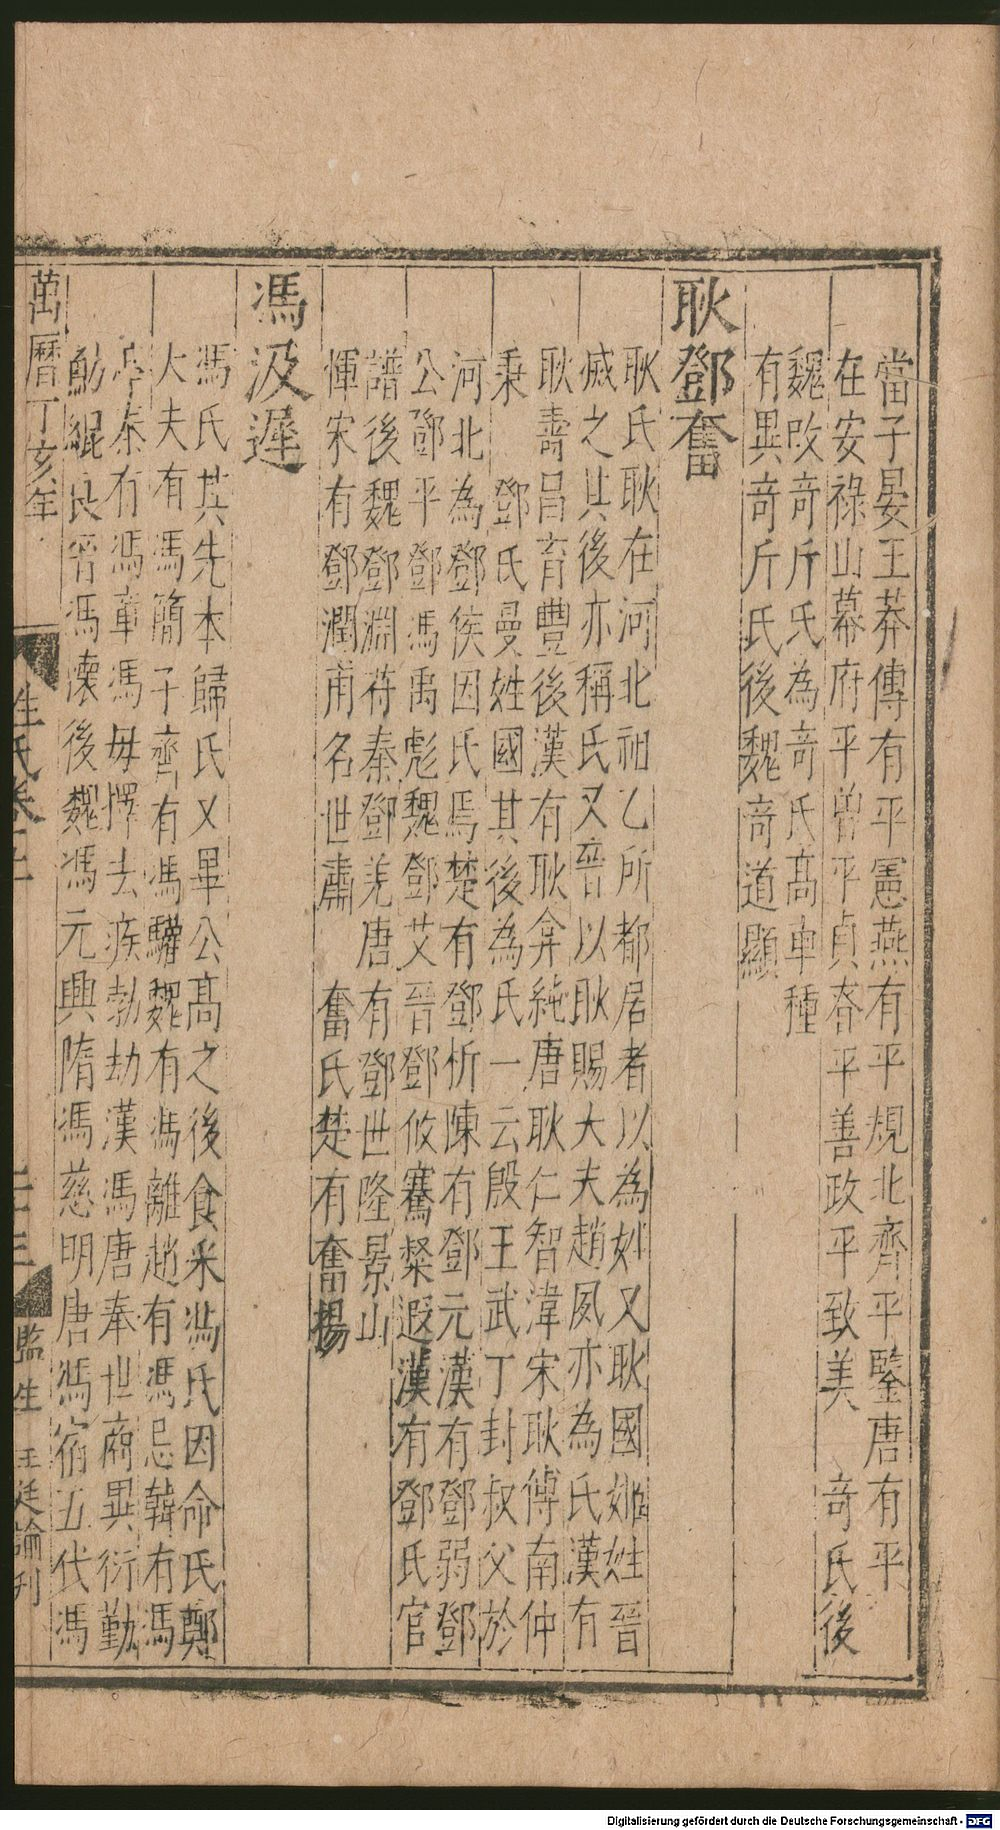 當子晏王莽傳有平憲燕有平規北齊平鑒唐有平
在安祿山幕府平曾平貞眘平善政平致美 竒氏後
魏改竒斤氏為竒氏髙車種
有異竒斤氏後魏竒道顯
耿鄧奮
耿氏耿在河北祖乙所都居者以為姓又耿國姬姓晉
滅之其後亦稱氏又晉以耿賜大夫趙夙亦為氏漢有
耿壽昌育豐後漢有耿弇純唐耿仁智湋宋耿傅南仲
秉 鄧氏曼姓國其後為氏一云殷王武丁封叔父於
河北為鄧侯因氏焉楚有鄧析陳有鄧元漢有鄧弱鄧
公鄧平鄧馮禹彪魏鄧艾晉鄧攸騫粲遐漢有鄧氏官
譜後魏鄧淵苻秦鄧羌唐有鄧世隆景山
惲宋有鄧潤甫名世肅 奮氏楚有奮揚
馮汲遲
馮氏其先本歸氏又畢公髙之後食采馮氏因命氏鄭
大夫有馮簡子齊有馮驩魏有馮離趙有馮忌韓有馮
亭秦有馮章馮毋擇去疾劫漢馮唐奉世商異衍勤
魴緄良晉馮懷後魏馮元興隋馮慈明唐馮宿五代馮
萬曆丁亥年
姓氏卷
監生 王廷諭刊
Digitalisierung gefördert durch die Deutsche Forschungsgemeinschaft - DFG